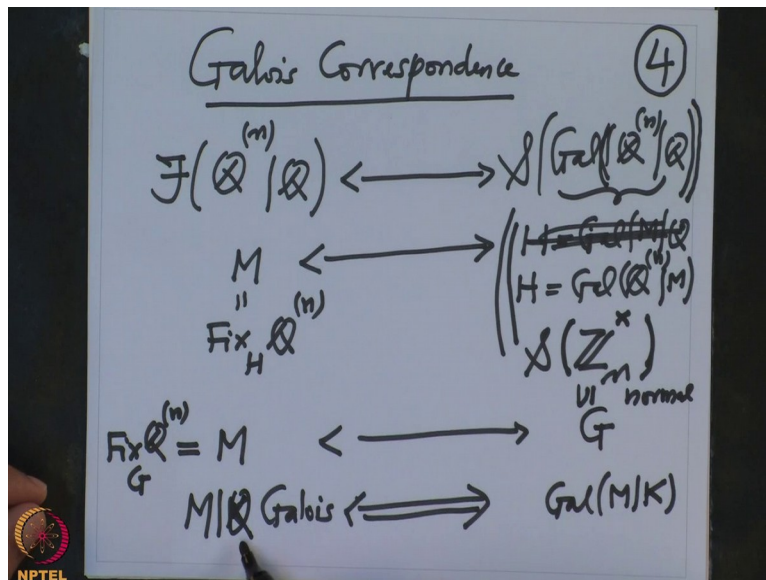 Galois Correspondence
4
F(ℚ^(n) | ℚ) <——> S(Gal(ℚ^(n) | ℚ))
H = Gal(M|ℚ
M <——> H = Gal(ℚ^(n) | M)
=
Fix_H ℚ^(n)
S(ℤ_n^×)
∪I normal
Fix_G ℚ^(n) = M <——> G
M|ℚ Galois <==> Gal(M|K)
NPTEL